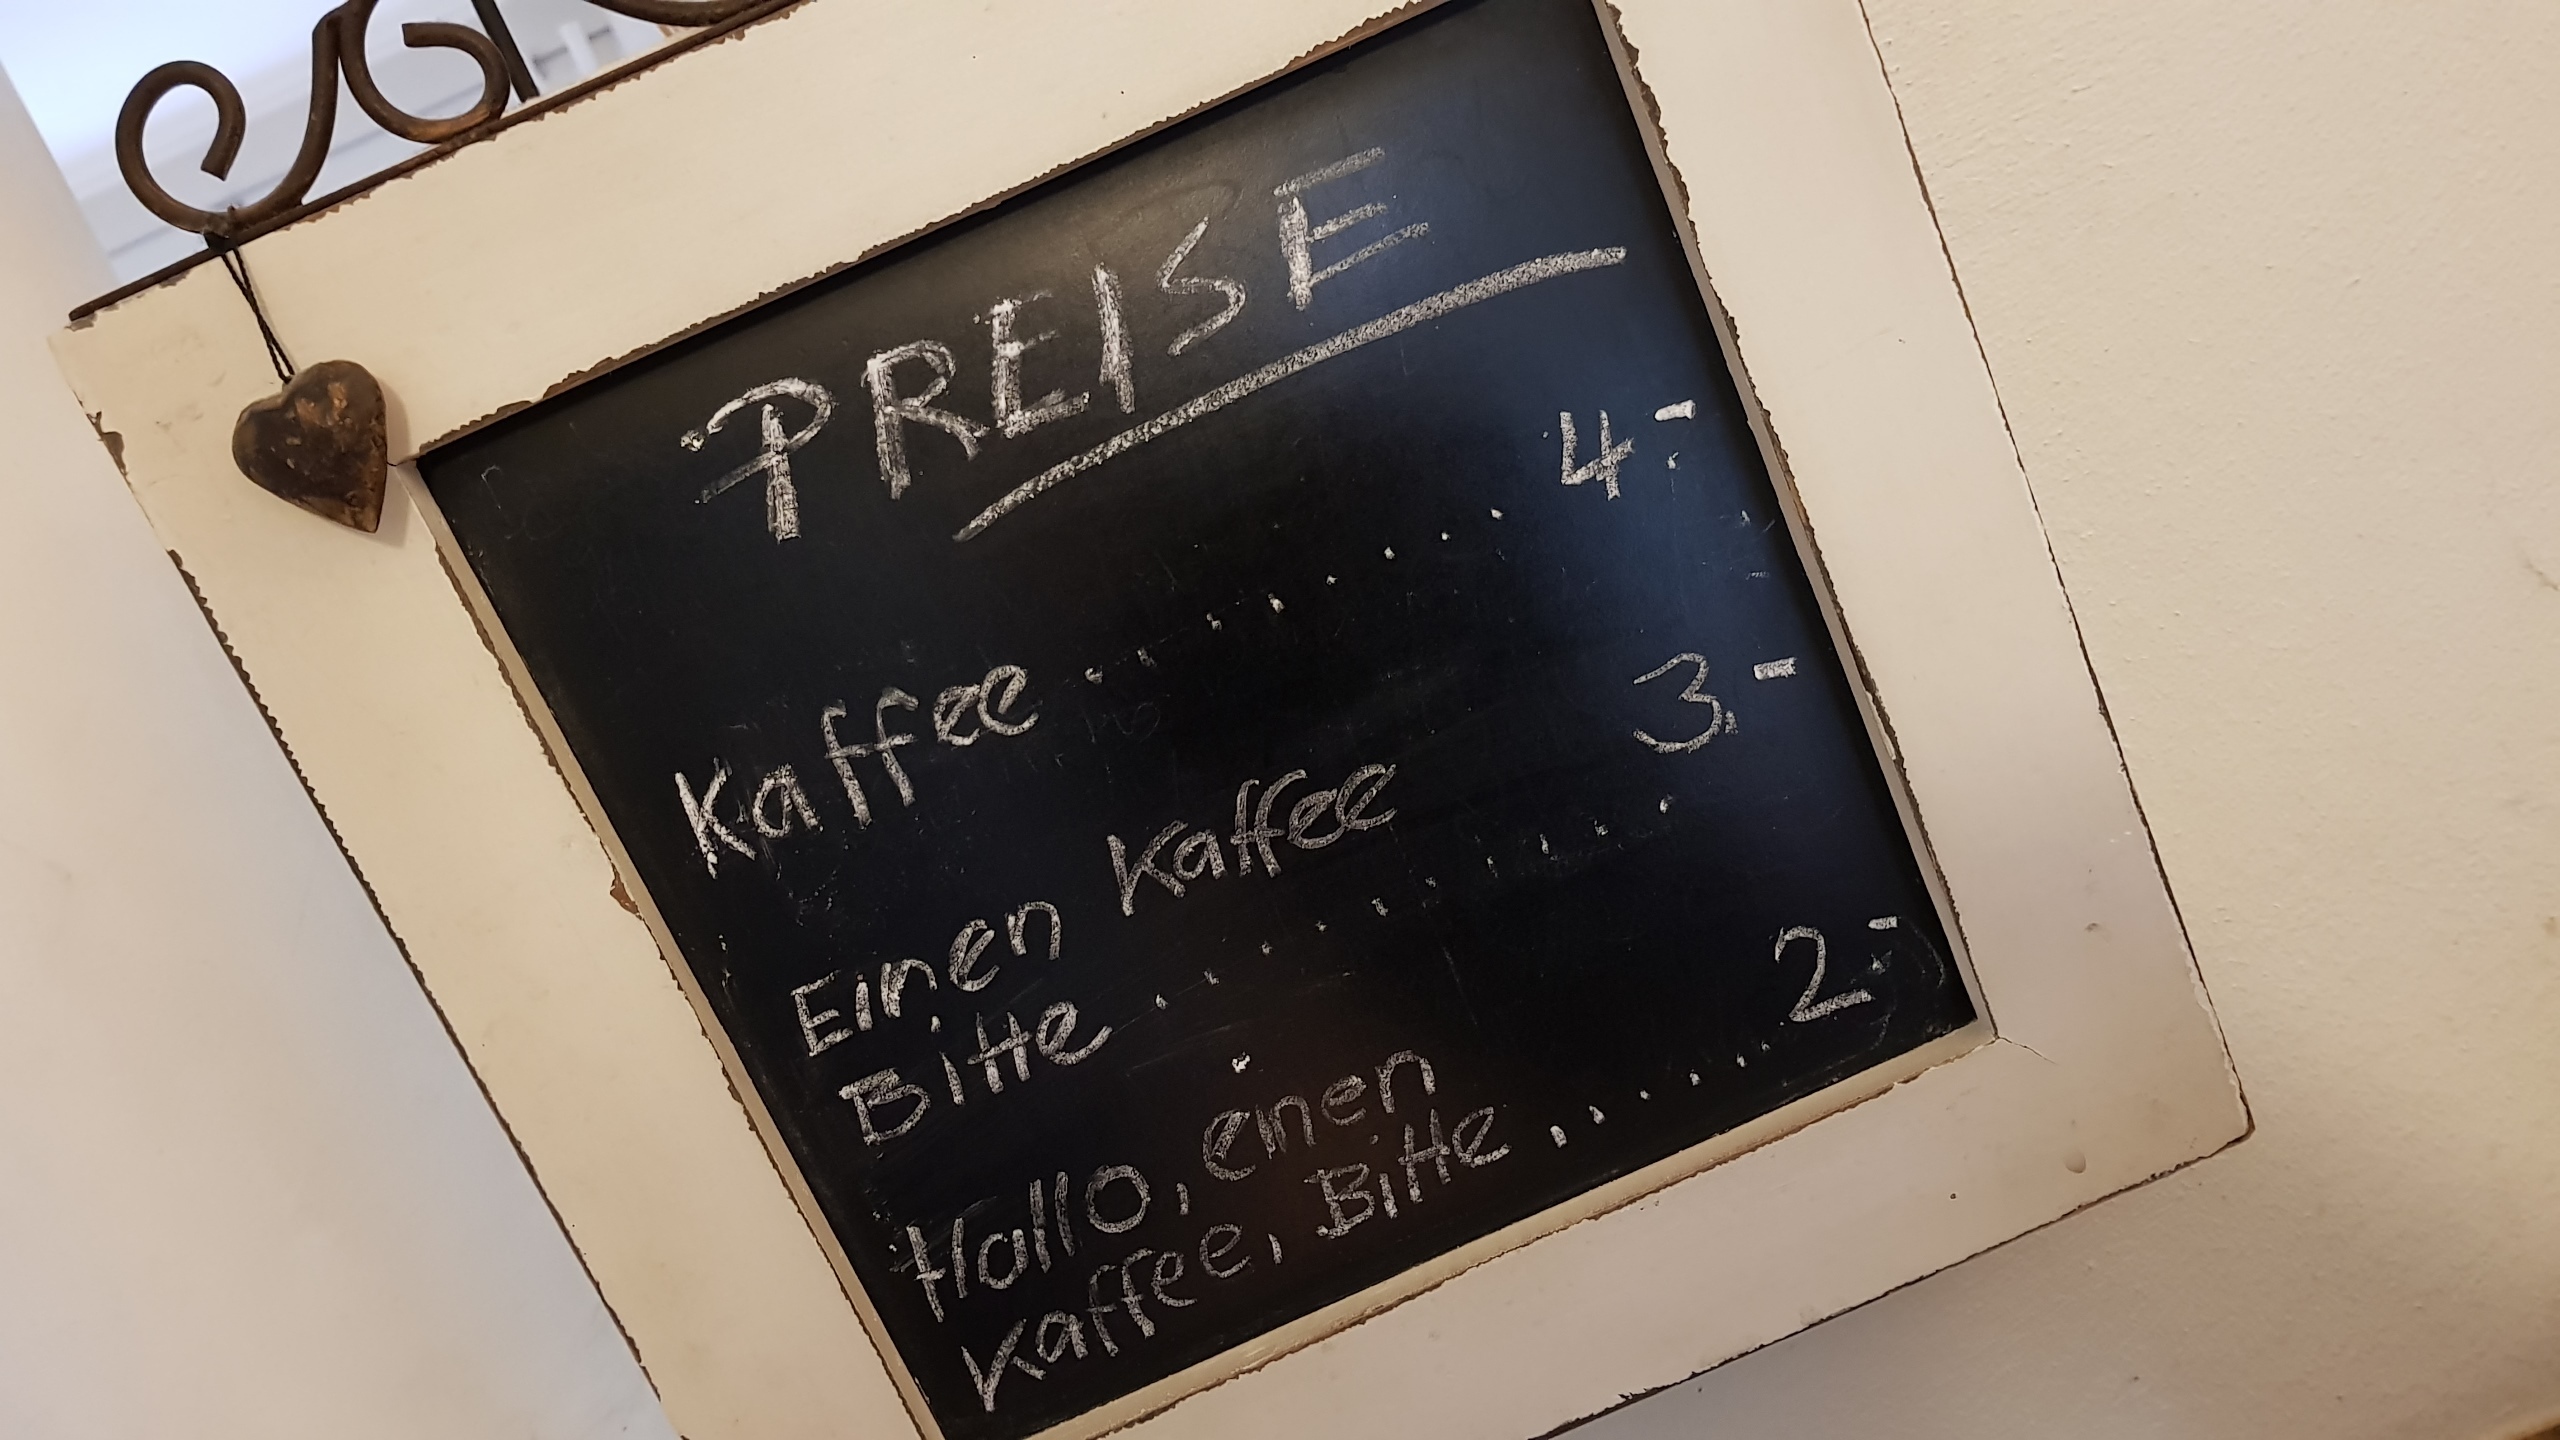 PREISE
Kaffee .......... 4,-
Einen Kaffee
Bitte .......... 3,-
Hallo, einen
Kaffee, Bitte ...... 2,-